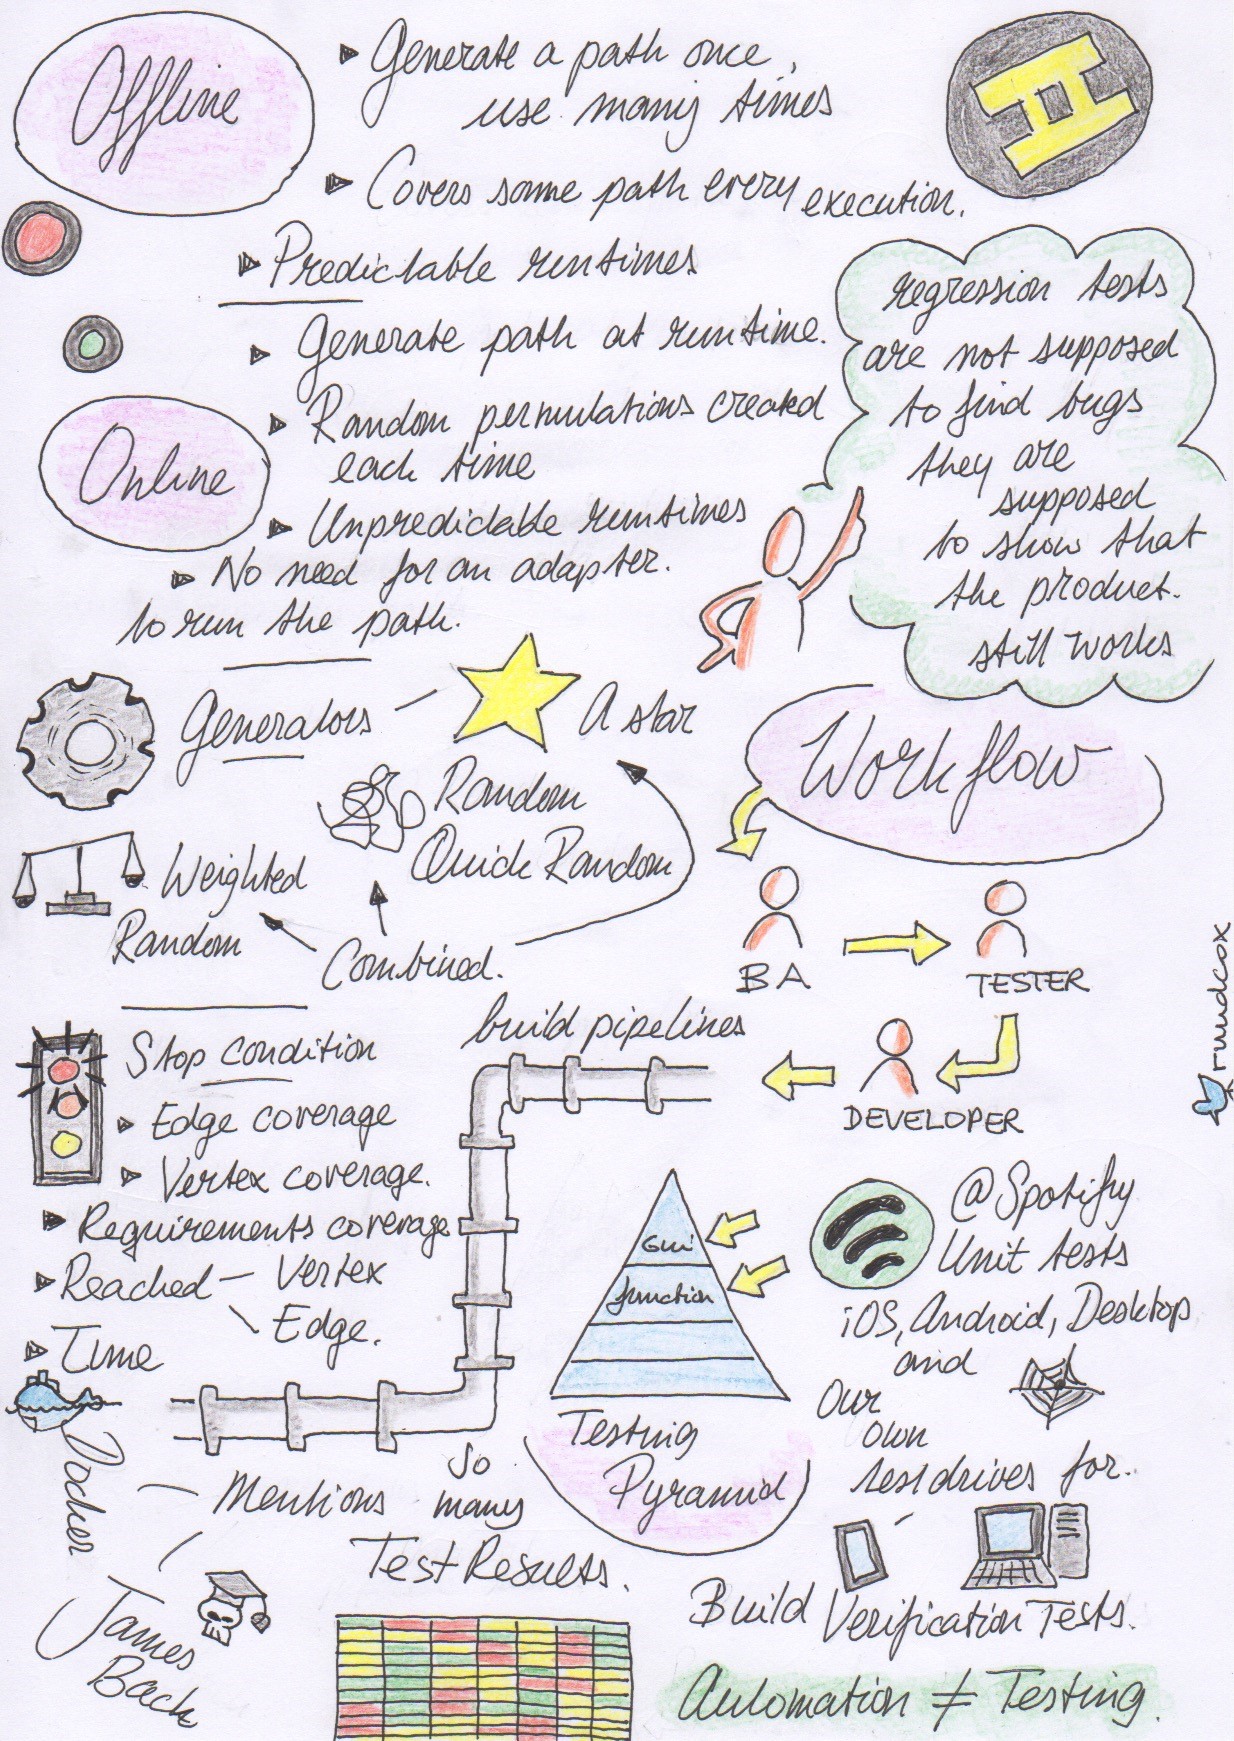 Offline
Generate a path once,
use many times
II
Covers same path every execution.
Predictable runtimes
Generate path at runtime.
Online
Random permutations created
each time
Unpredictable runtimes
No need for an adapter.
to run the path.
regression tests
are not supposed
to find bugs
they are
supposed
to show that
the product.
still works
Generators
A star
Random
Quick Random
Weighted
Random
Combined.
Workflow
BA
TESTER
DEVELOPER
build pipelines
ruudcox
Stop condition
Edge coverage
Vertex coverage.
Requirements coverage
Reached - Vertex
Edge.
Time
Docker
Mentions
James
Back
GUI
function
Testing
Pyramid
@Spotify
Unit tests
iOS, Android, Desktop
and
Our
own
testdrives for..
Build Verification Tests.
So
many
Test Results.
Automation ≠ Testing.